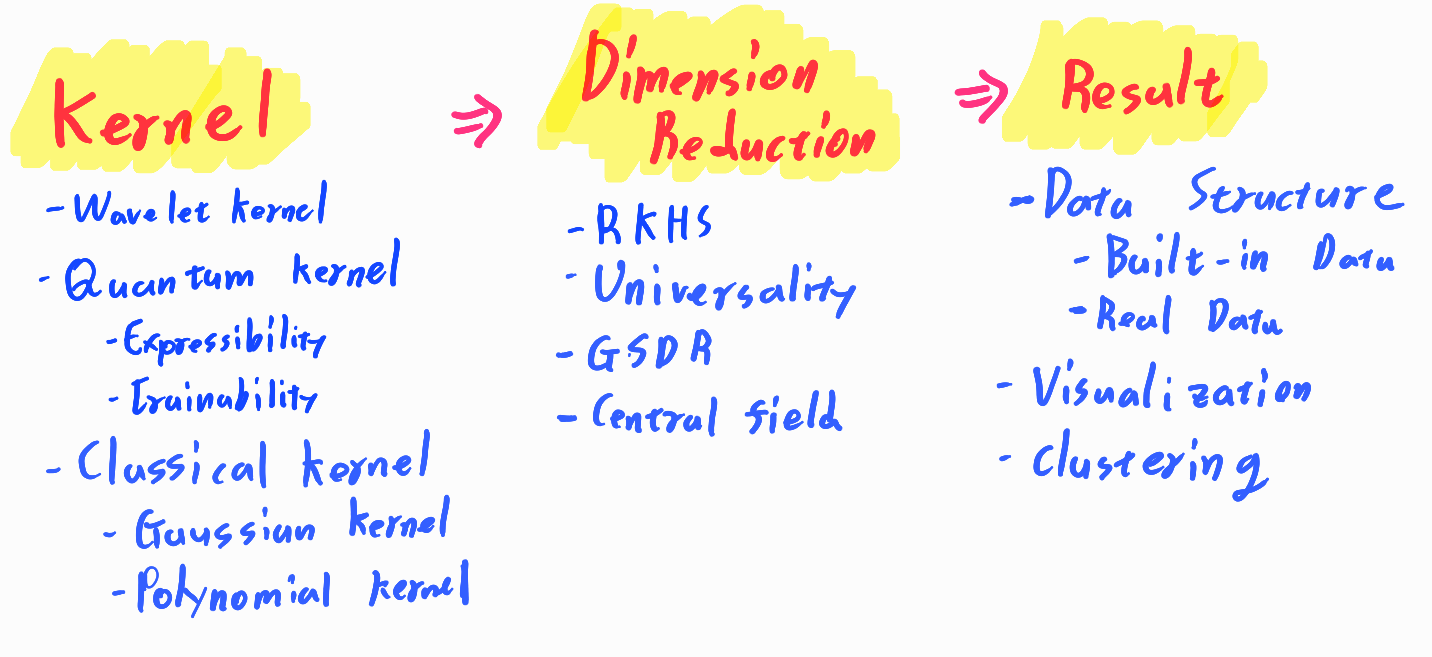 Kernel
- Wavelet kernel
- Quantum kernel
- Expressibility
- Trainability
- Classical kernel
- Gaussian kernel
- Polynomial kernel
⇒
Dimension
Reduction
- RKHS
- Universality
- GSDR
- Central field
⇒
Result
- Data Structure
- Built-in Data
- Real Data
- Visualization
- Clustering